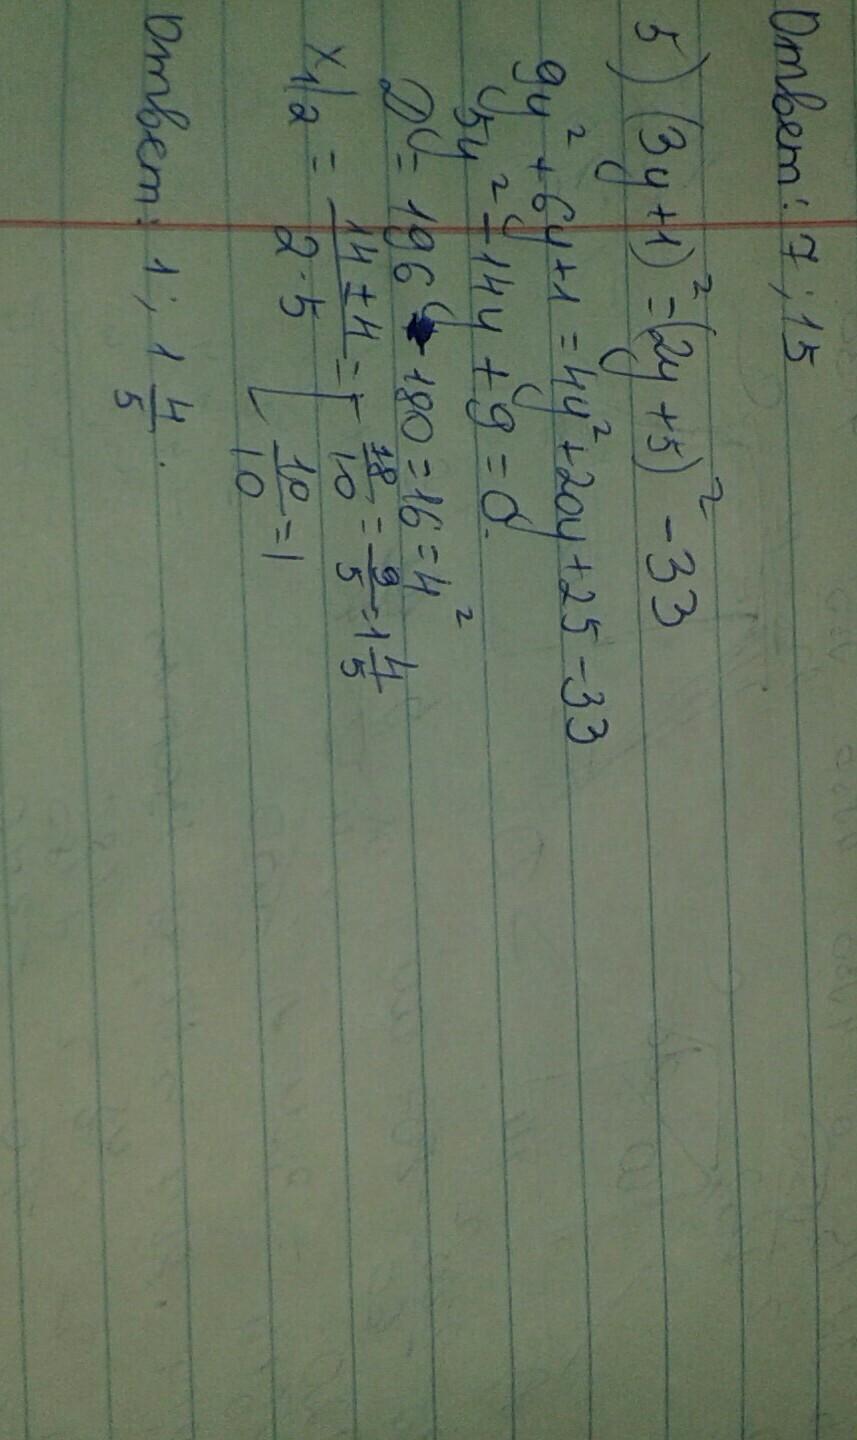 Ответ: 7; 15
5) (3y+1)² = (2y+5)² - 33
9y² + 6y + 1 = 4y² + 20y + 25 - 33
5y² - 14y + 9 = 0.
D = 196 - 180 = 16 = 4²
x₁/₂ = (14 ± 4)/(2·5) = [ 18/10 = 9/5 = 1 4/5
10/10 = 1
Ответ: 1; 1 4/5.